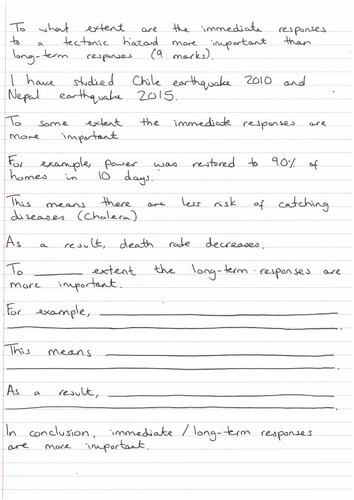 To what extent are the immediate responses
to a tectonic hazard more important than
long-term responses (9 marks).
I have studied Chile earthquake 2010 and
Nepal earthquake 2015.
To some extent the immediate responses are
more important
For example, power was restored to 90% of
homes in 10 days.
This means there are less risk of catching
diseases (Cholera)
As a result, death rate decreases.
To ________ extent the long-term responses are
more important.
For example, ________
This means ________
As a result, ________
In conclusion, immediate / long-term responses
are more important.